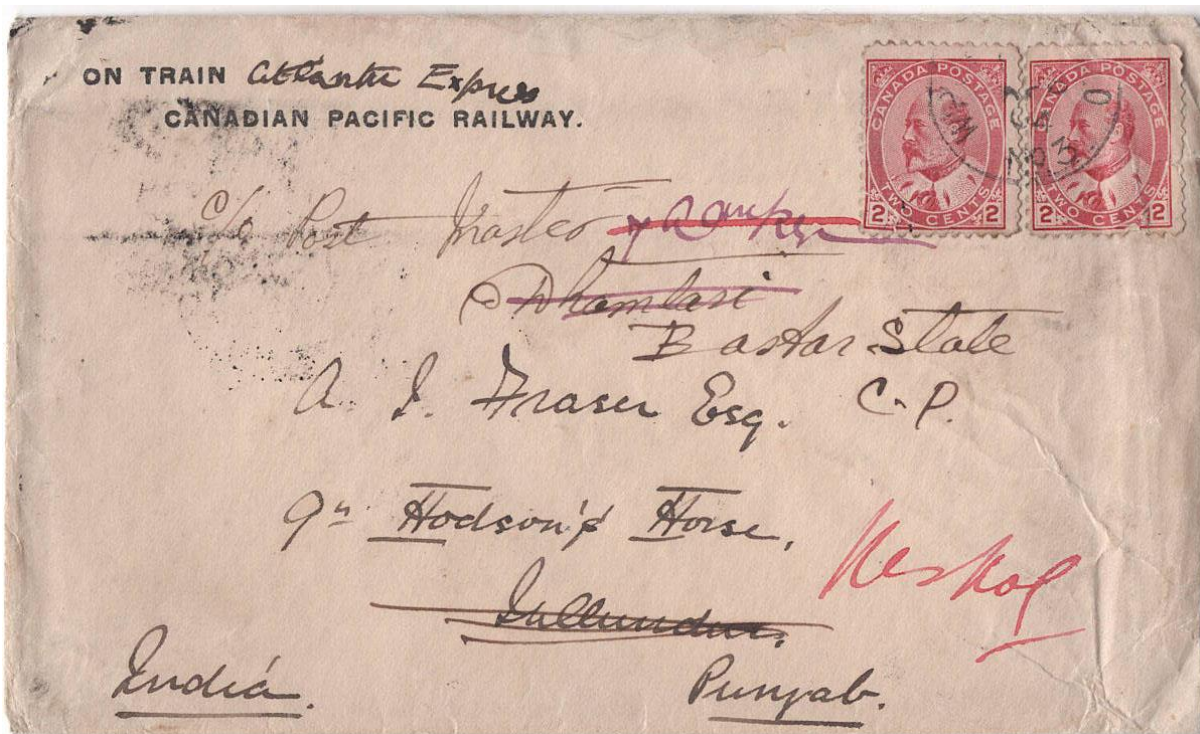 ON TRAIN Atlantic Express
CANADIAN PACIFIC RAILWAY.
CANADA POSTAGE
TWO CENTS
2 2
CANADA POSTAGE
TWO CENTS
2 2
c/o Post Master
Dhamtari
Bastar State
A. I. Fraser Esq. C. P.
9th Hodson's Horse,
Jullundur,
India. Punjab.